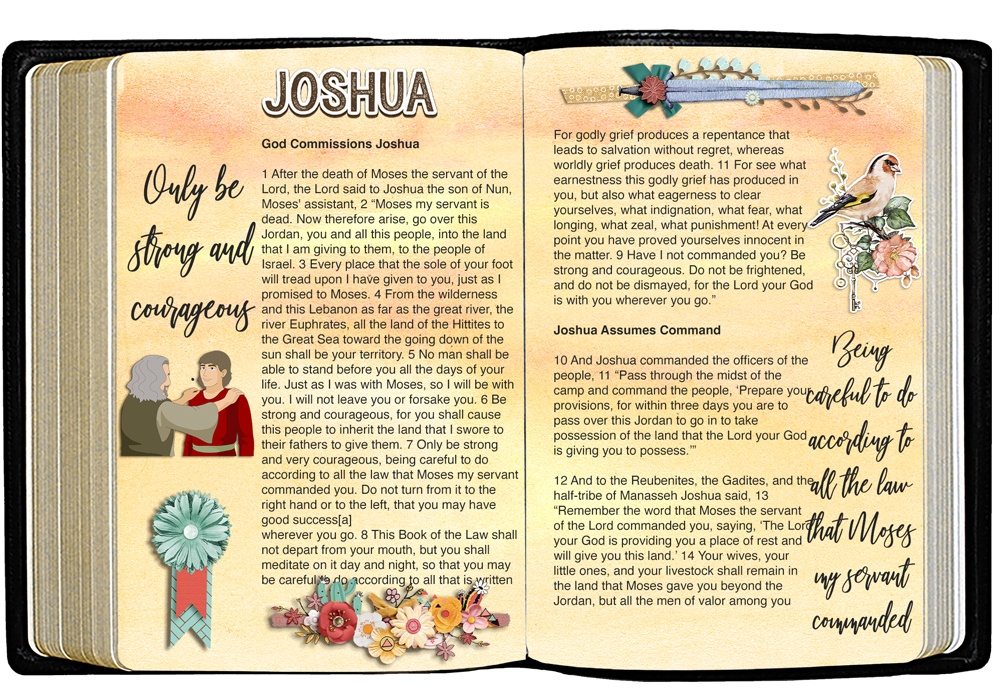 JOSHUA
God Commissions Joshua
1 After the death of Moses the servant of the
Lord, the Lord said to Joshua the son of Nun,
Moses' assistant, 2 “Moses my servant is
dead. Now therefore arise, go over this
Jordan, you and all this people, into the land
that I am giving to them, to the people of
Israel. 3 Every place that the sole of your foot
will tread upon I have given to you, just as I
promised to Moses. 4 From the wilderness
and this Lebanon as far as the great river, the
river Euphrates, all the land of the Hittites to
the Great Sea toward the going down of the
sun shall be your territory. 5 No man shall be
able to stand before you all the days of your
life. Just as I was with Moses, so I will be with
you. I will not leave you or forsake you. 6 Be
strong and courageous, for you shall cause
this people to inherit the land that I swore to
their fathers to give them. 7 Only be strong
and very courageous, being careful to do
according to all the law that Moses my servant
commanded you. Do not turn from it to the
right hand or to the left, that you may have
good success[a]
wherever you go. 8 This Book of the Law shall
not depart from your mouth, but you shall
meditate on it day and night, so that you may
be careful to do according to all that is written
Only be
strong and
courageous
For godly grief produces a repentance that
leads to salvation without regret, whereas
worldly grief produces death. 11 For see what
earnestness this godly grief has produced in
you, but also what eagerness to clear
yourselves, what indignation, what fear, what
longing, what zeal, what punishment! At every
point you have proved yourselves innocent in
the matter. 9 Have I not commanded you? Be
strong and courageous. Do not be frightened,
and do not be dismayed, for the Lord your God
is with you wherever you go.”
Joshua Assumes Command
10 And Joshua commanded the officers of the
people, 11 “Pass through the midst of the
camp and command the people, ‘Prepare your
provisions, for within three days you are to
pass over this Jordan to go in to take
possession of the land that the Lord your God
is giving you to possess.’”
12 And to the Reubenites, the Gadites, and the
half-tribe of Manasseh Joshua said, 13
“Remember the word that Moses the servant
of the Lord commanded you, saying, ‘The Lord
your God is providing you a place of rest and
will give you this land.’ 14 Your wives, your
little ones, and your livestock shall remain in
the land that Moses gave you beyond the
Jordan, but all the men of valor among you
Being
careful to do
according to
all the law
that Moses
my servant
commanded